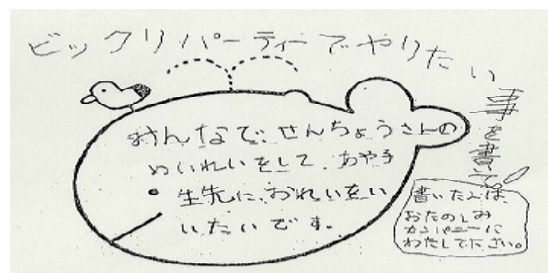 ビックリパーティーでやりたい事を書いて
みんなで、せんちょうさんの
めいれいをして、あや子
生先に、おれいをい
いたいです。
書いた人は、
おたのしみ
カンパニーに
わたして下さい。